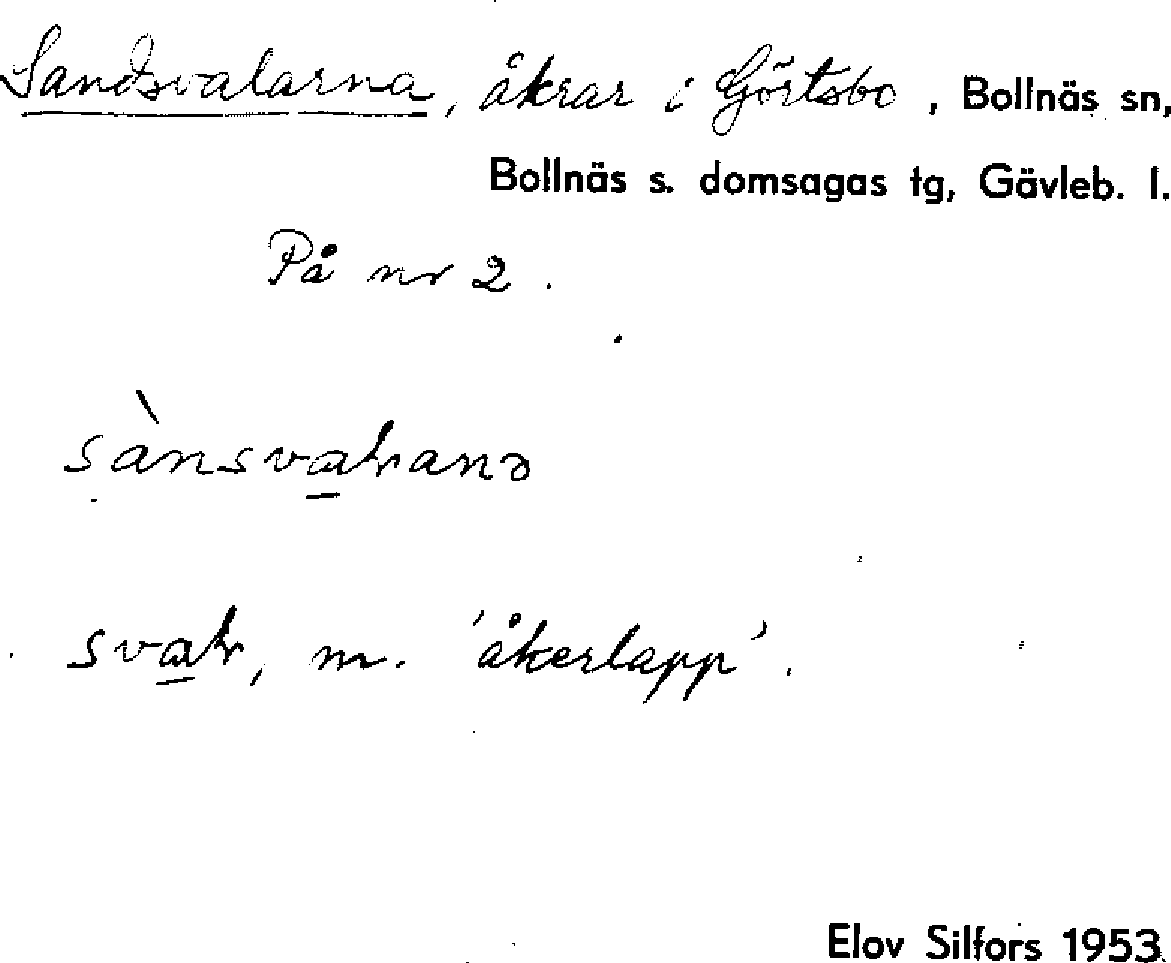 Sandsvalarna, åkrar i Görtsbo, Bollnäs sn,
Bollnäs s. domsagas tg, Gävleb. l.
På nr 2.
sànsvaɽanə
svaɽ, m. 'åkerlapp'.
Elov Silfors 1953